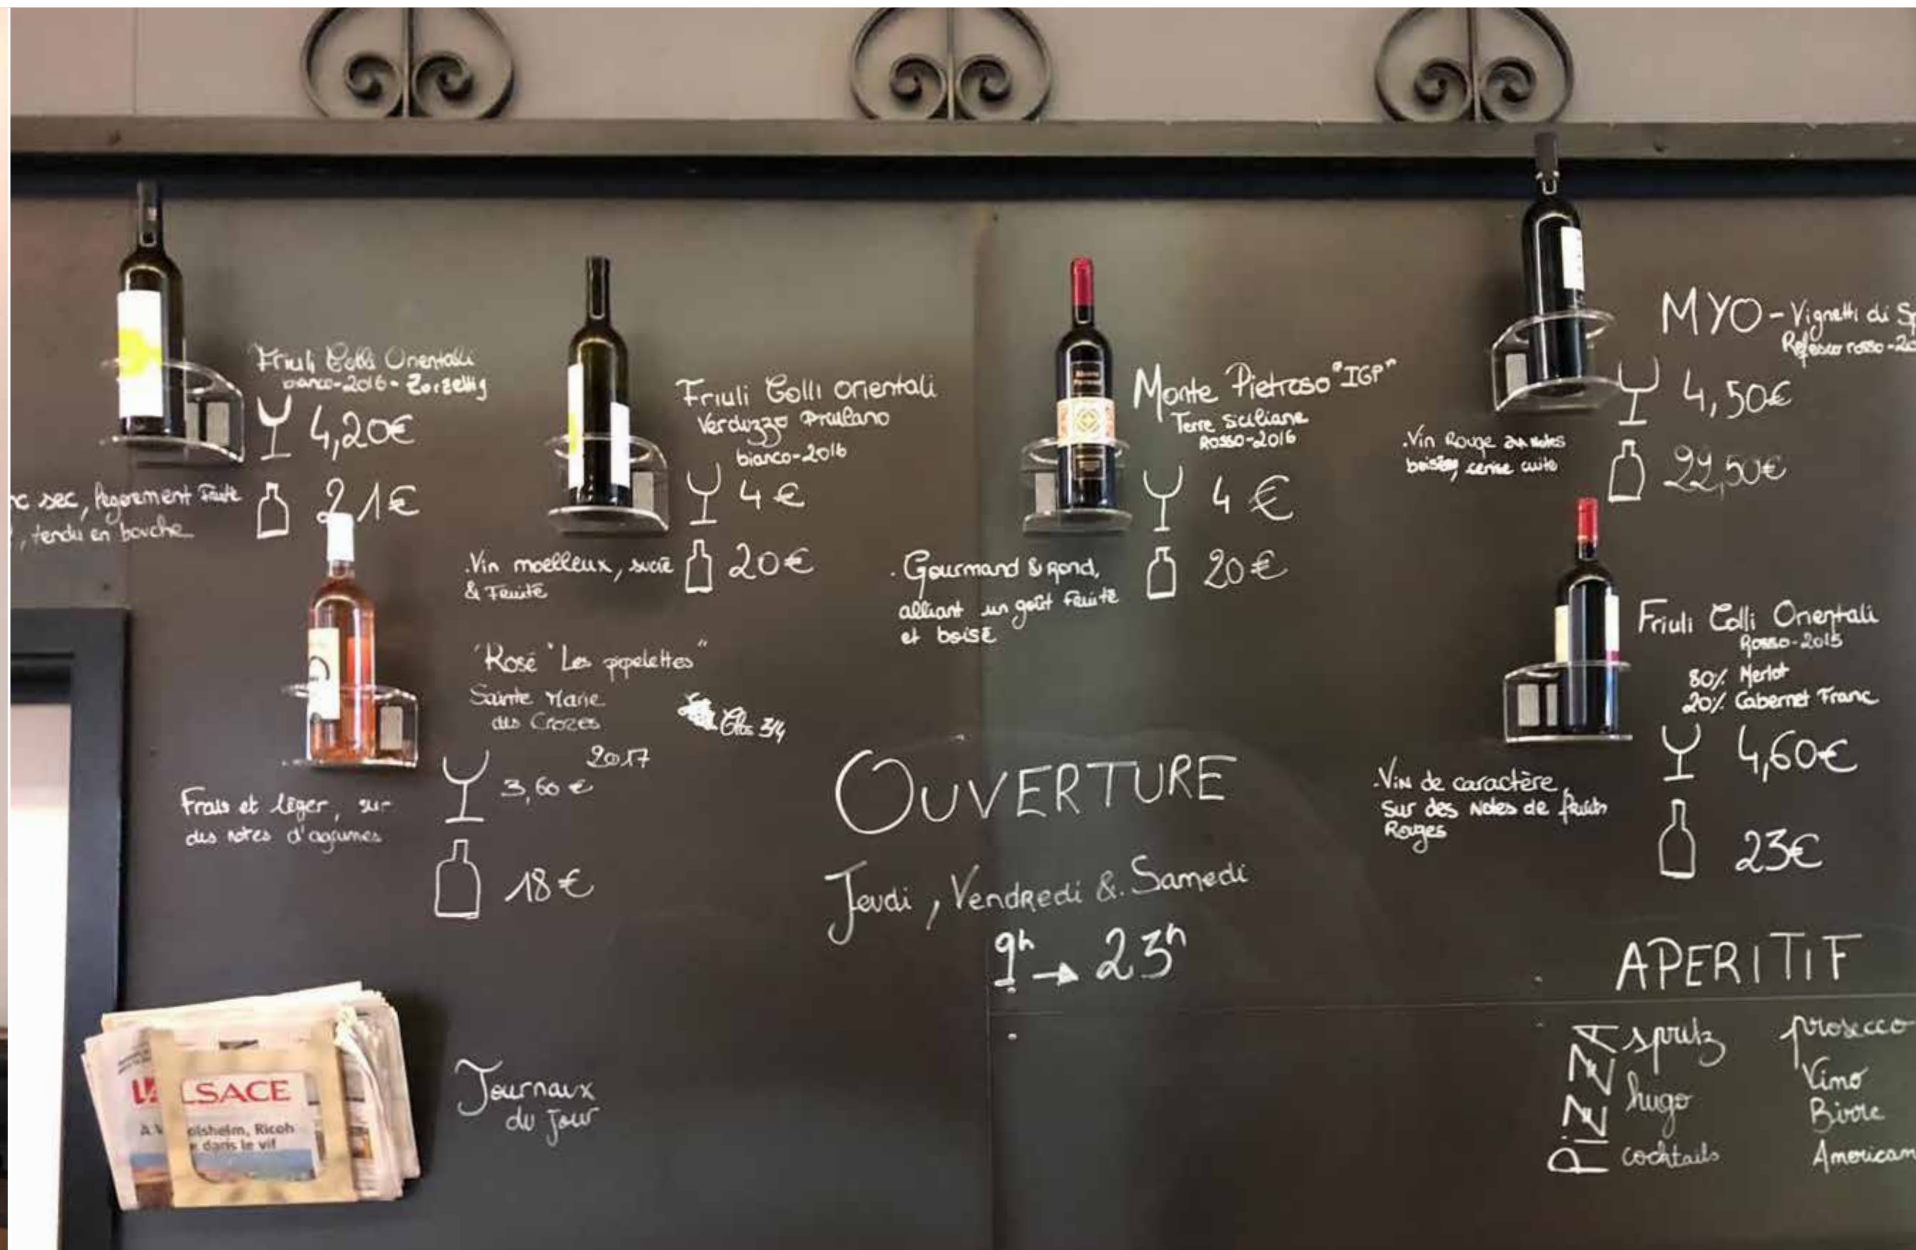 Friuli Colli Orientali
bianco-2016- Zorzettig
4,20€
21€
sec, légèrement Fruité
, tendu en bouche
Friuli Colli orientali
Verduzzo Friulano
bianco-2016
4€
20€
.Vin moelleux, sucré
& Fruité
Monte Pietroso "IGP"
Terre Siciliane
Rosso-2016
4€
20€
. Gourmand & Rond,
alliant un goût Fruité
et boisé
MYO - Vignetti di
Refosco rosso
4,50€
22,50€
.Vin Rouge aux Notes
boisées, cerise cuite
"Rosé "Les pipelettes"
Sainte Marie
des Crozes
2017
3,60€
18€
Frais et léger, sur
des notes d'agrumes
Friuli Colli Orientali
Rosso-2015
80% Merlot
20% Cabernet Franc
4,60€
23€
.Vin de caractère,
Sur des Notes de fruits
Rouges
OUVERTURE
Jeudi, Vendredi & Samedi
9h → 23h
APERITIF
PiZZA
spritz
hugo
cocktails
prosecco
Vino
Birre
Journaux
du Jour
L'ALSACE
olsheim, Ricoh
dans le vif